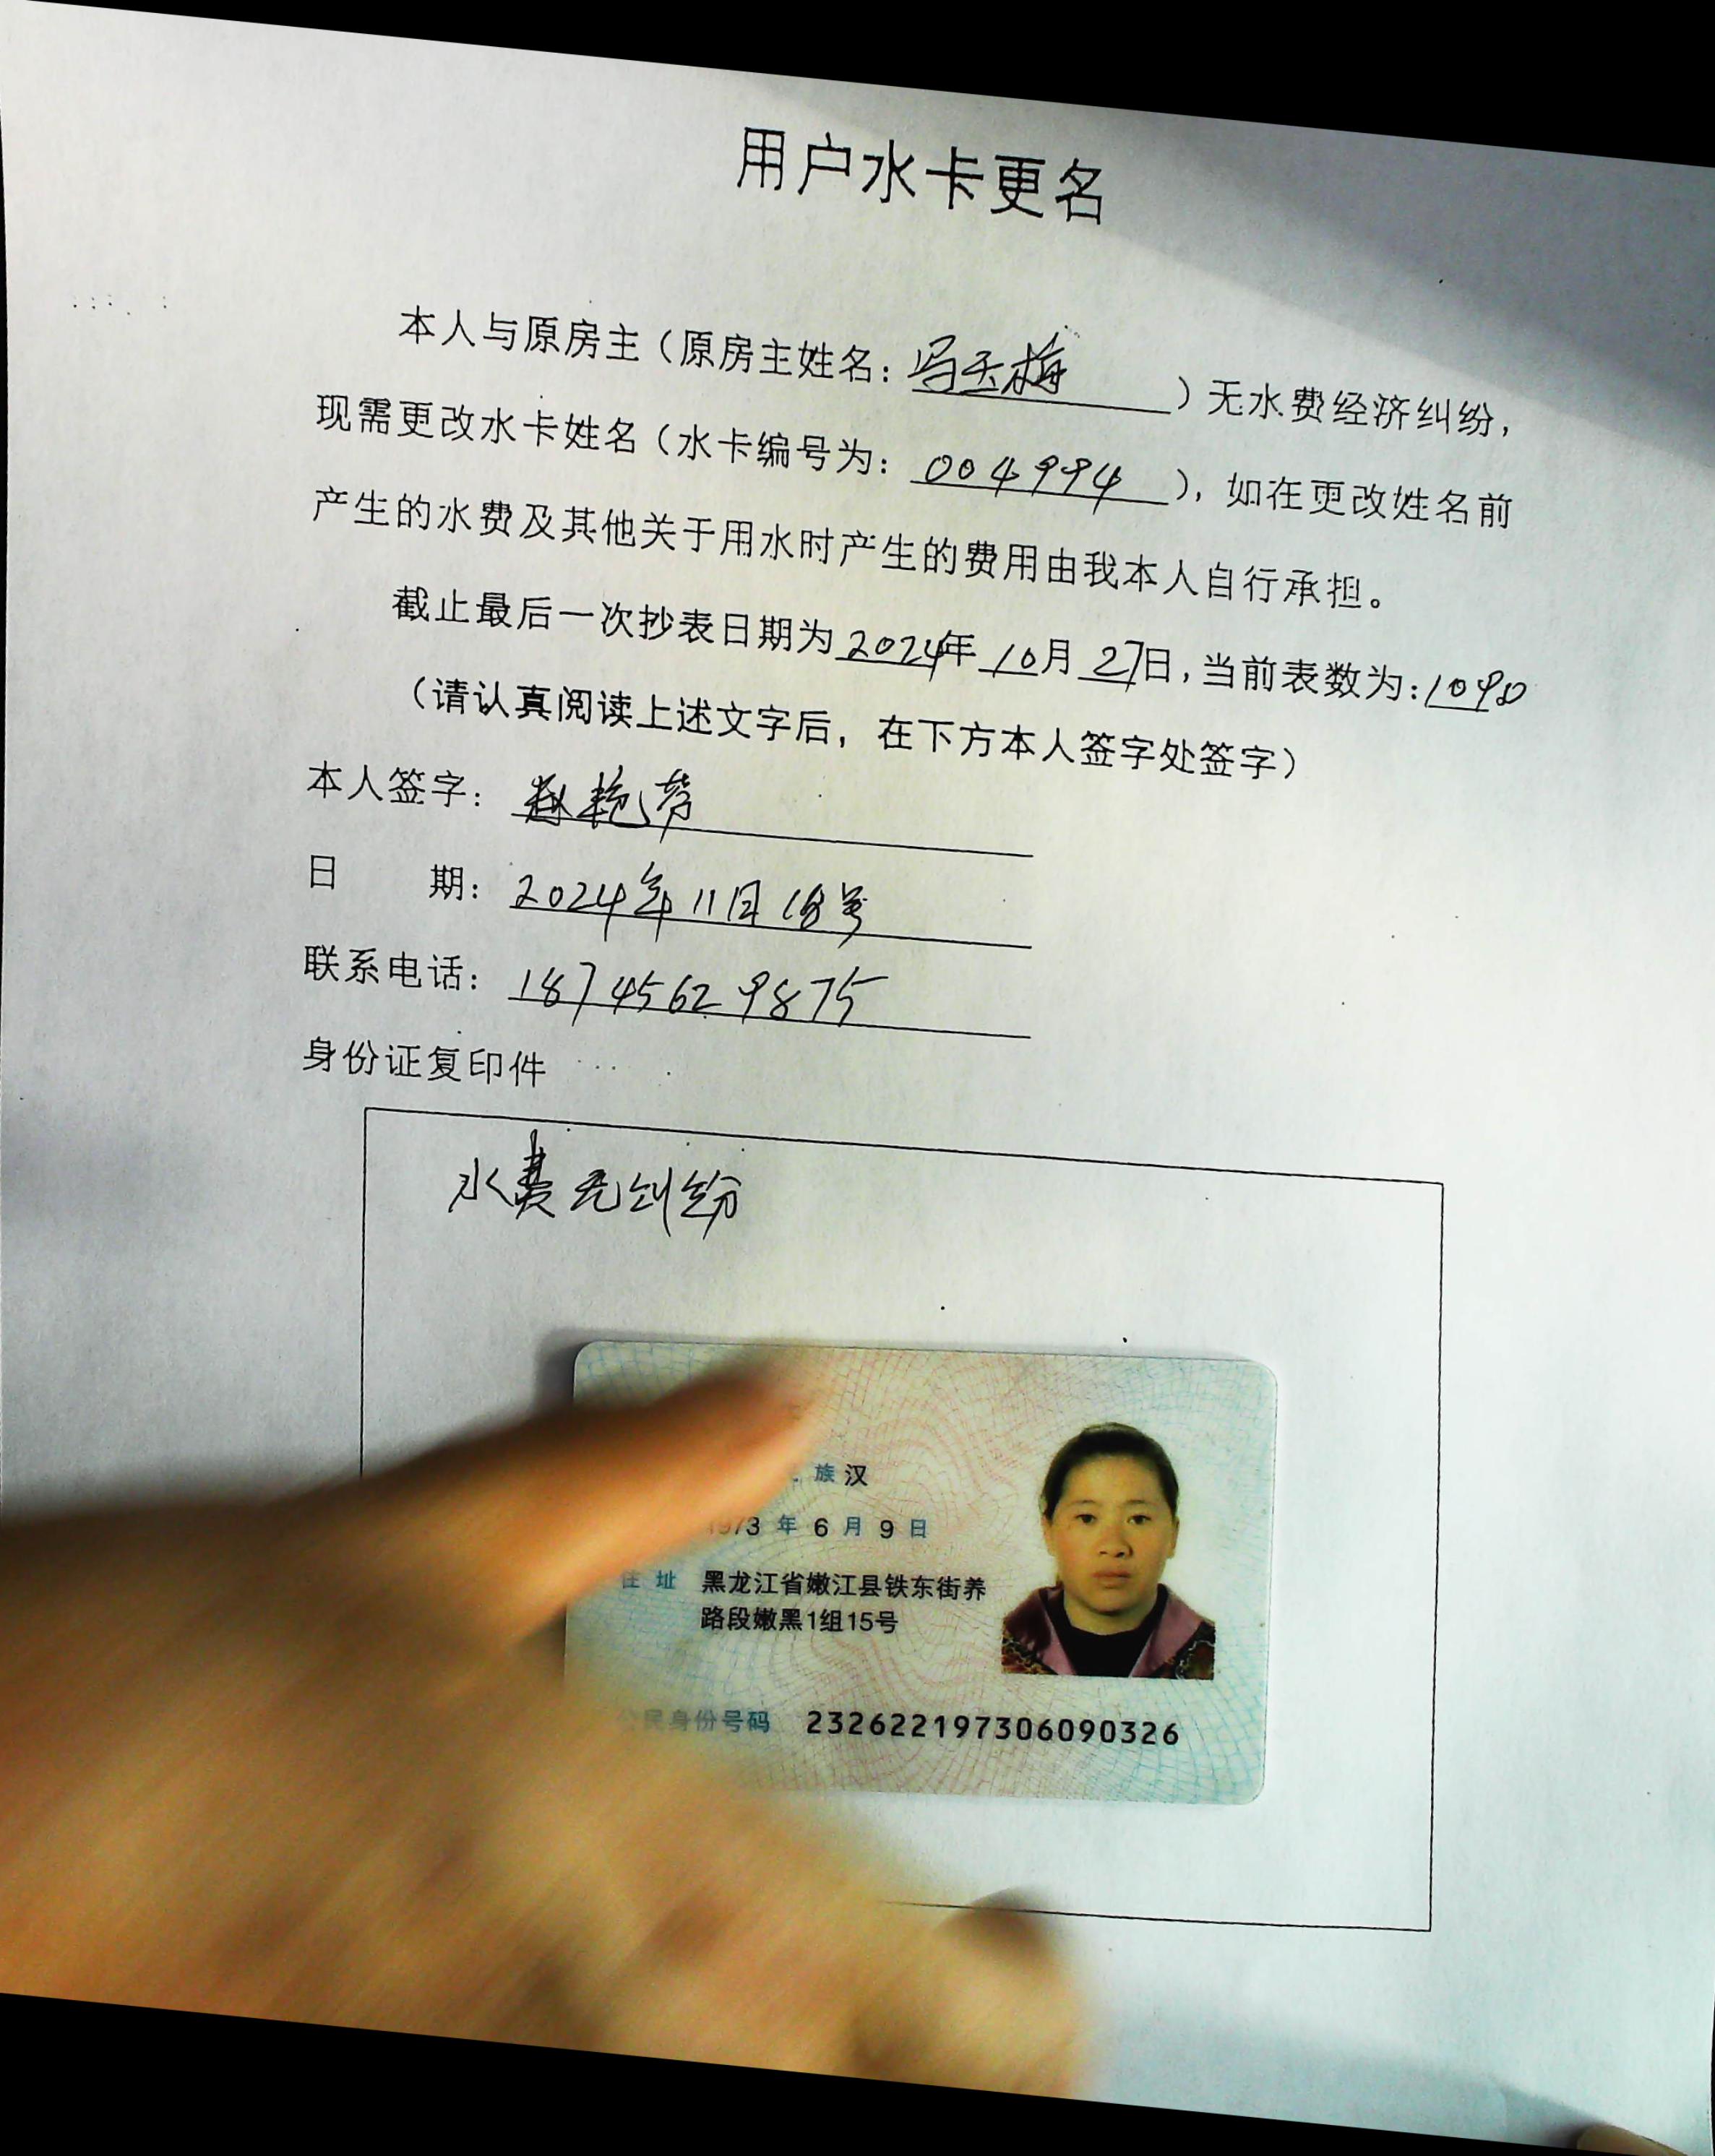 用户水卡更名
本人与原房主（原房主姓名：冯玉梅）无水费经济纠纷，
现需更改水卡姓名（水卡编号为：004994），如在更改姓名前
产生的水费及其他关于用水时产生的费用由我本人自行承担。
截止最后一次抄表日期为2024年10月27日，当前表数为：1090
（请认真阅读上述文字后，在下方本人签字处签字）
本人签字：
日 期：2024年11月18号
联系电话：18745629875
身份证复印件
水费无纠纷
族 汉
1973 年 6 月 9 日
住 址 黑龙江省嫩江县铁东街养
路段嫩黑1组15号
公民身份号码 232622197306090326